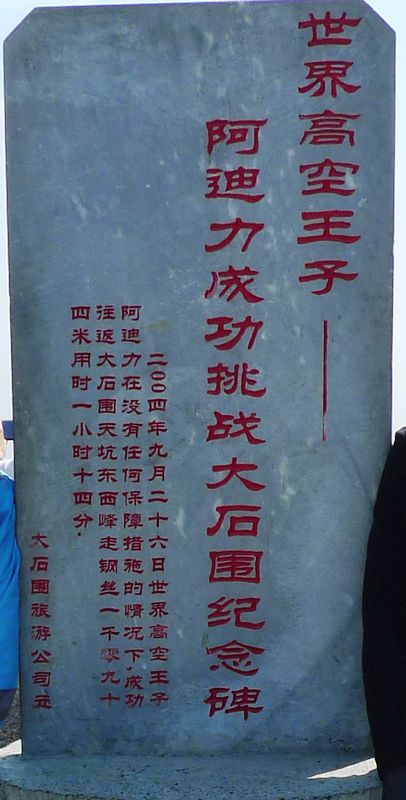 世界高空王子——
阿迪力成功挑战大石围纪念碑
二00四年九月二十六日世界高空王子
阿迪力在没有任何保障措施的情况下,成功
往返大石围天坑东西峰走钢丝一千零九十
四米用时一小时十四分.
大石围旅游公司立